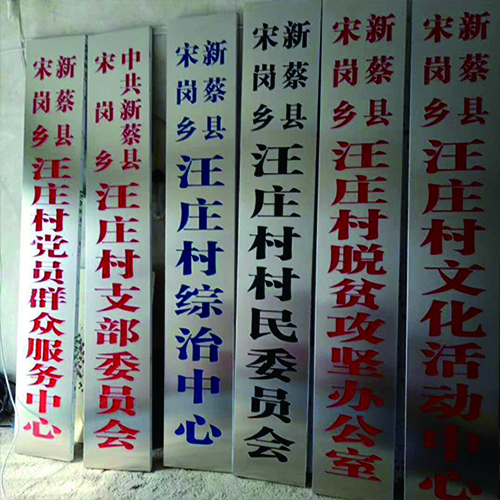 新蔡县
宋岗乡
汪庄村党员群众服务中心
中共新蔡县
宋岗乡
汪庄村支部委员会
新蔡县
宋岗乡
汪庄村综治中心
新蔡县
宋岗乡
汪庄村村民委员会
新蔡县
宋岗乡
汪庄村脱贫攻坚办公室
新蔡县
宋岗乡
汪庄村文化活动中心